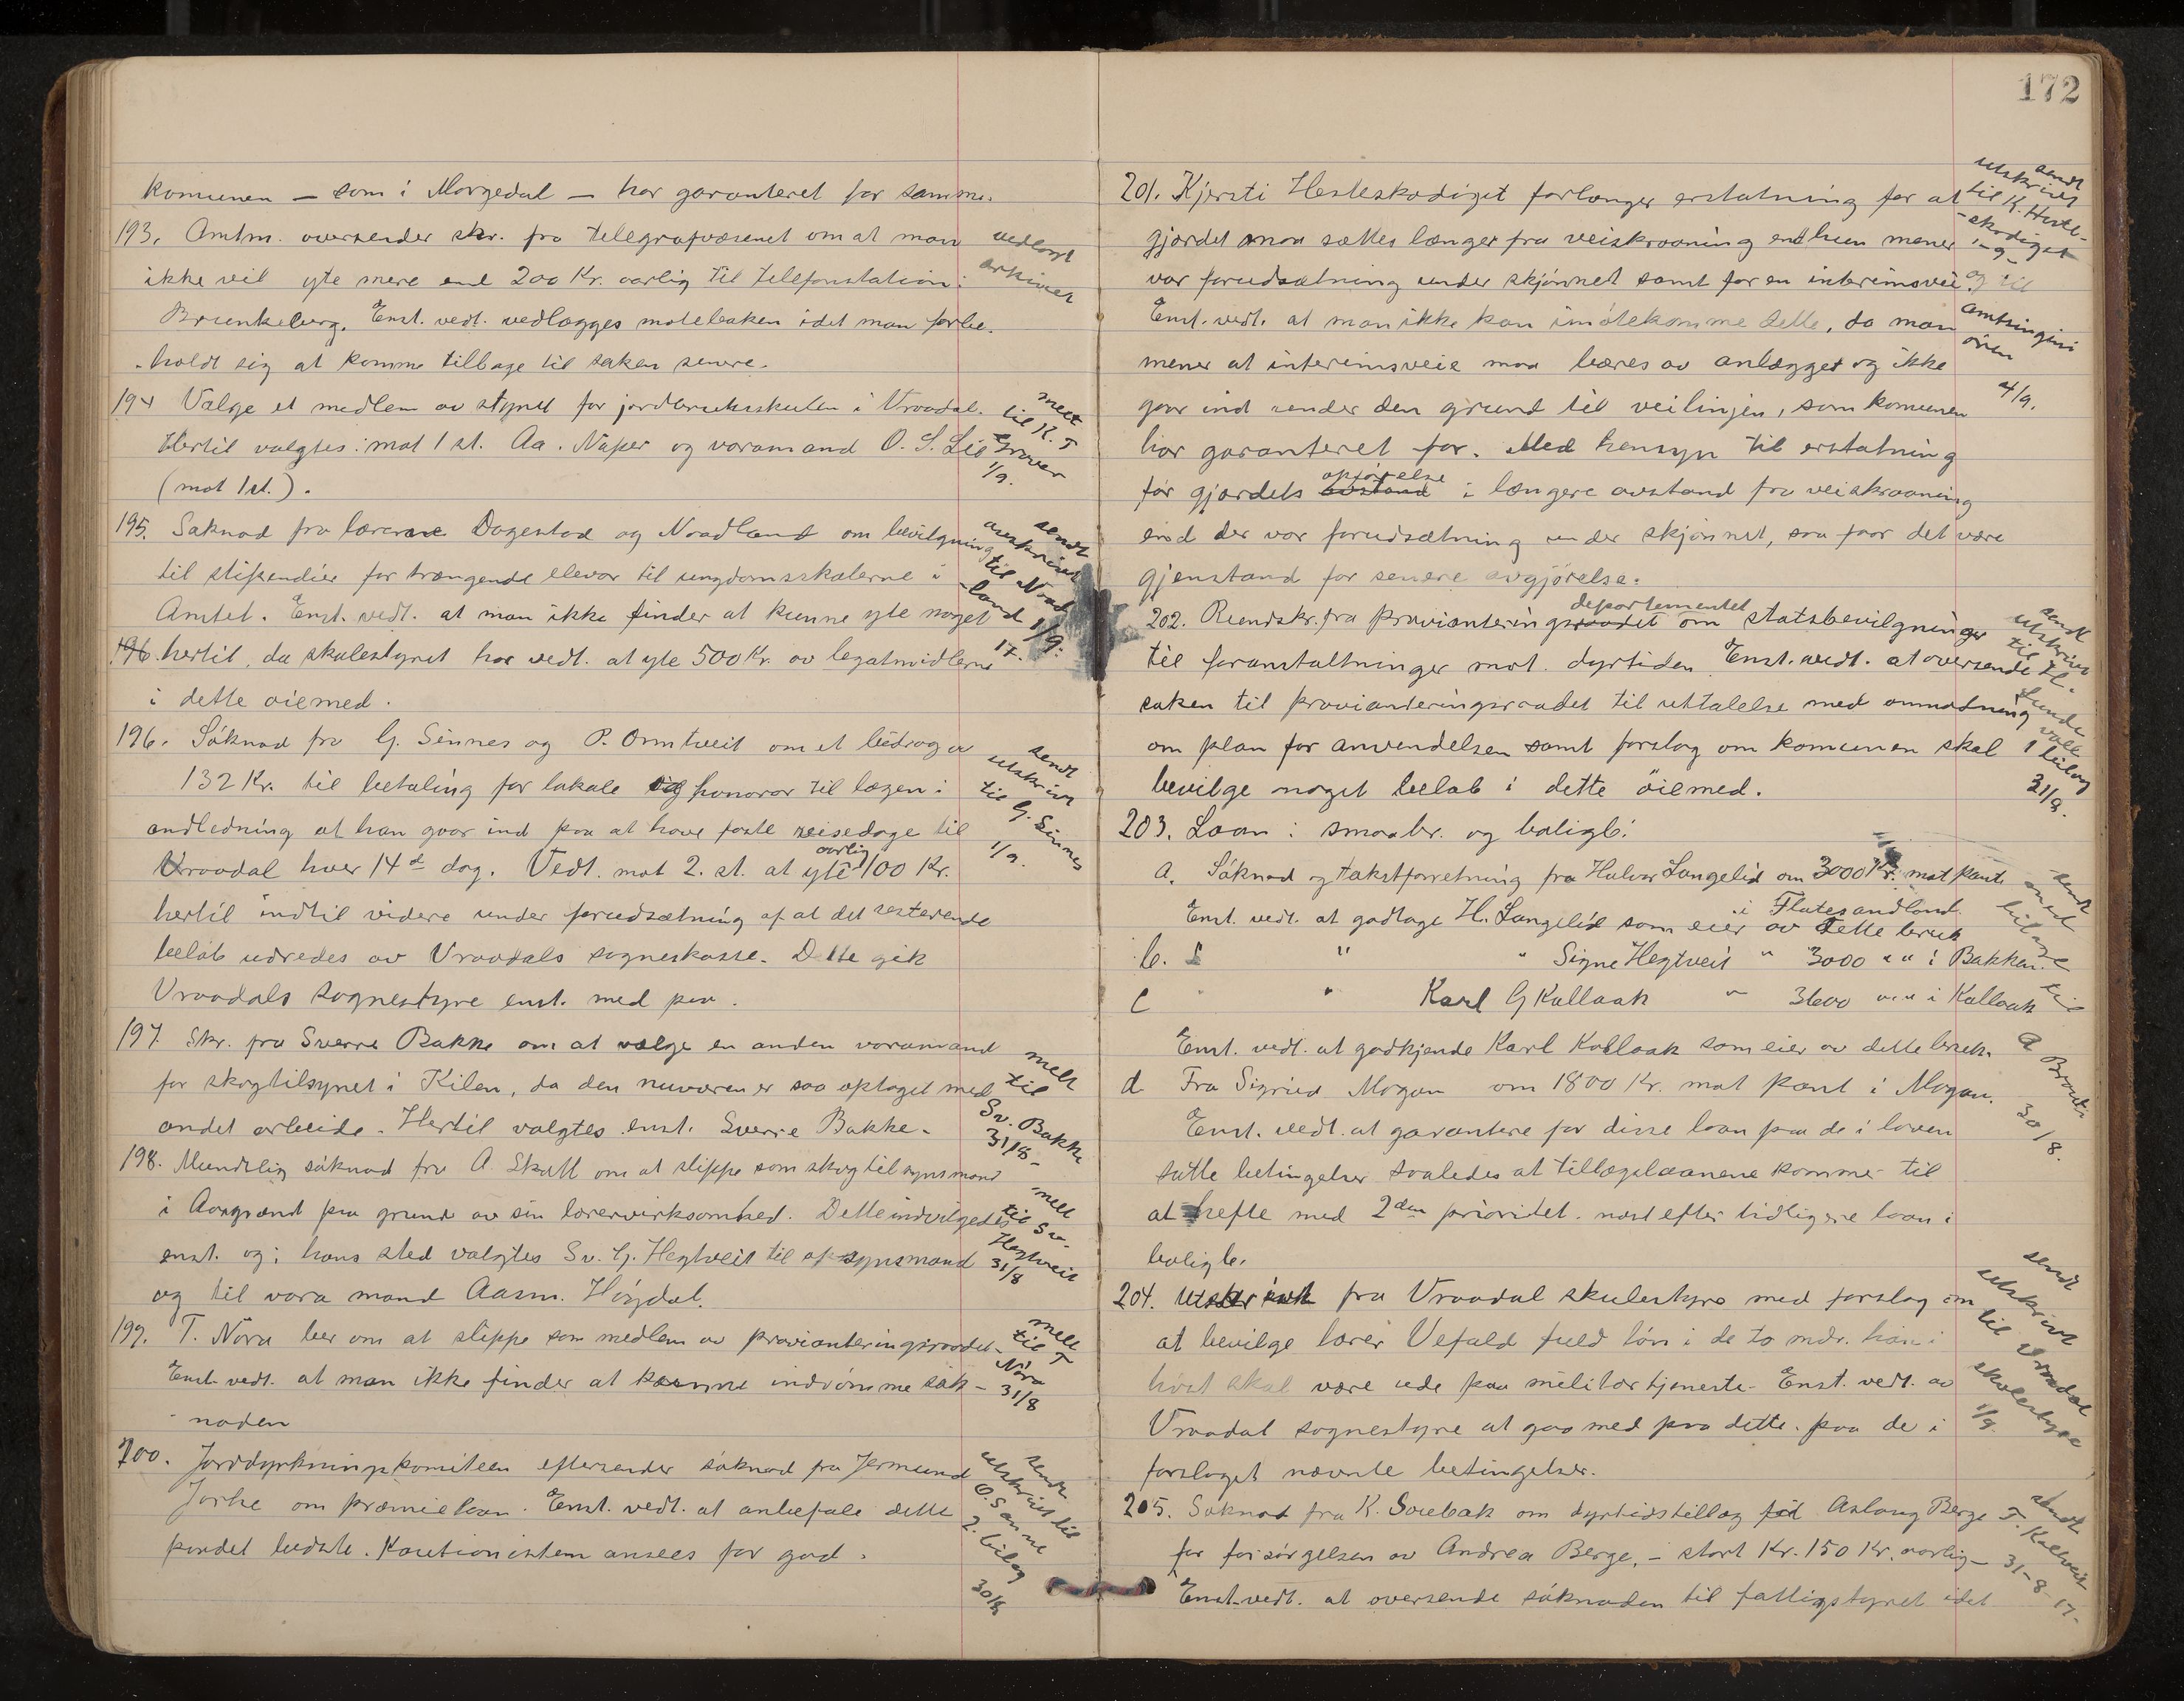 komunen — som i Morgedal — har garanteret for samme.
193. Amtm. oversender skr. fra telegrafvæsenet om at man
ikke vil yte mere end 200 Kr. aarlig til telefonstation i
Brunkeberg. Enst. vedt. vedlægges møteboken idet man forbe-
-holdt sig at komme tilbage til saken senere.
vedlagt
arkivet
194 Valge et medlem av styret for jordbruksskulen i Vraadal.
Hertil valgtes mot 1 st. Aa. Naper og varamand O. S. Lie
(mot 1 st.).
melt
til K. T
Grover
1/9.
195. Søknad fra lærerne Dagestad og Nordland om bevilgning
til stipendier for trængende elever til ungdomsskolerne i
Amtet. Enst. vedt. at man ikke finder at kunne yte noget
196. hertil, da skulestyret har vedt. at yte 500 Kr. av legatmidlerne
i dette øiemed.
sendt
utskrivt
til Nord
-land 1/9.
17.
196. Søknad fra G. Sinnes og P. Ormtveit om et bidrag av
132 Kr. til betaling for lokale og honorar til lægen i
andledning at han gaar ind paa at have faste reisedage til
Vraadal hver 14d dag. Vedt. mot 2. st. at yte aarlig 100 Kr.
hertil indtil videre under forudsætning af at det resterende
beløb udredes av Vraadals sogneskasse. Dette gik
Vraadals sognestyre enst. med paa.
sendt
utskrivt
til G. Sinnes
1/9.
197 Skr. fra Sverre Bakke om at vælge en anden varamand
for skogtilsynet i Kilen, da den nuværen er saa optaget med
andet arbeide. Hertil valgtes enst. Sverre Bakke.
melt
til
Sv. Bakke
31/8-
198. Mundtlig søknad fra A. Skatt om at slippe som skogtilsynsmand
i Aargrænd paa grund av sin lærervirksomhed. Dette indvilgedes
enst. og i hans sted valgtes Sv. G. Hegtveit til opsynsmand
og til vara mand Aasm. Høydal.
melt
til Sv.
Hegtveit
31/8
199. T. Nøra ber om at slippe som medlem av provianteringsraadet-
Enst vedt. at man ikke finder at kunne indrømme søk-
-naden
melt
til T
Nøra
31/8
200. Jorddyrkningskomiteen eftersender søknad fra Jermund
om præmielaan. Enst. vedt. at anbefale dette
paa det bedste. Kautionisten ansees for god.
sendt
utskrivt til
O. Sanne
2. bilag
30/8
172
201. Kjersti Hesteskodiget forlanger erstatning for at
gjerdet maa sættes længer fra veiskraaning end hun mener
var forudsætning under skjønnet samt for en interimsvei.
Enst. vedt. at man ikke kan imøtekomme dette, da man
mener at interimsveie maa bæres av anlægget og ikke
gaar ind under den grund til veilinjen, som komunen
har garanteret for. Med hensyn til erstatning
før gjerdets avstand opførelse i længere avstand fra veiskraaning
end der var forudsætning under skjønnet, saa faar det være
gjenstand for senere avgjørelse.
sendt
utskrivt
til K. Heste-
-skodiget
og til
amtsingini
ören
4/9.
202. Rundskr. fra provianteringsraadet departementet om statsbevilgninger
til foranstaltninger mot dyrtiden. Enst. vedt. at oversende
saken til provianteringsraadet til uttalelse med anmodning
om plan for anvendelsen samt forslag om komunen skal
bevilge noget beløb i dette øiemed.
sendt
utskrivt
til H.
Lunde
vall
1 bilag
31/8.
203. Laan i smaabr. og boligl:
a. Søknad og takstforretning fra Halvor Langelid om 3000 Kr. mot pant
i Flatesandland
Enst. vedt. at godtage H. Langelid som eier av dette bruk
b. " " Signe Hegtveit " 3000 " " i Bakken.
c " " Karl G Kallaak " 3600 " " i Kallaak
Enst. vedt. at godkjende Karl Kallaak som eier av dette bruk.
d Fra Sigrid Mogan om 1800 Kr. mot pant i Mogan.
Enst. vedt. at garantere for disse laan paa de i loven
satte betingelser saaledes at tillægslaanene komme til
at hefte med 2den prioritet næst efter tidligere laan i
boligb.
sendt
med
bilage
til
A
30/8.
204. Utskrivt fra Vraadal skulestyre med forslag om
at bevilge lærer Vefald fuld løn i de to mdr. han i
høst skal være ude paa militærtjeneste. Enst. vedt. av
Vraadal sognestyre at gaa med paa dette paa de i
forslaget nævnte betingelser.
sendt
utskrivt
til Vraadal
skulestyre
1/9.
205. Søknad fra K. Soubak om dyrtidstillæg til Aslaug Berge
for forsørgelsen av Andrea Berge, - stort Kr. 150 Kr. aarlig-
Enst vedt. at oversende søknaden til fattigstyret idet
sendt
T. Kallveit
31-8-17-